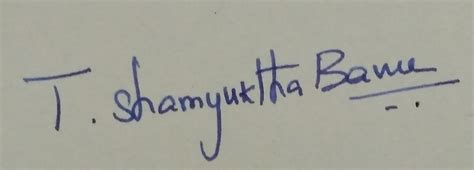 T. Shamyuktha Banu